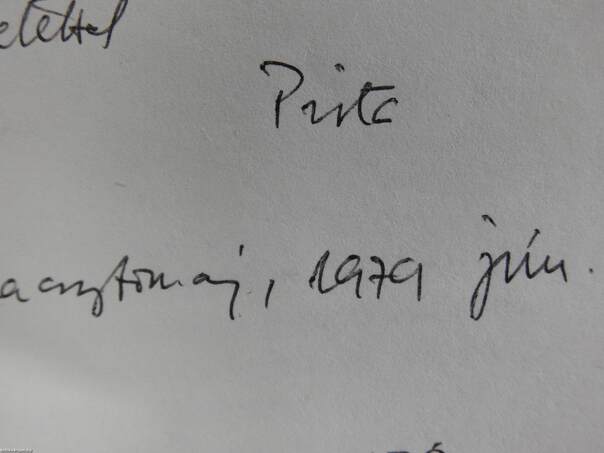 etettel
Pista
acsztomaj, 1979 jún.